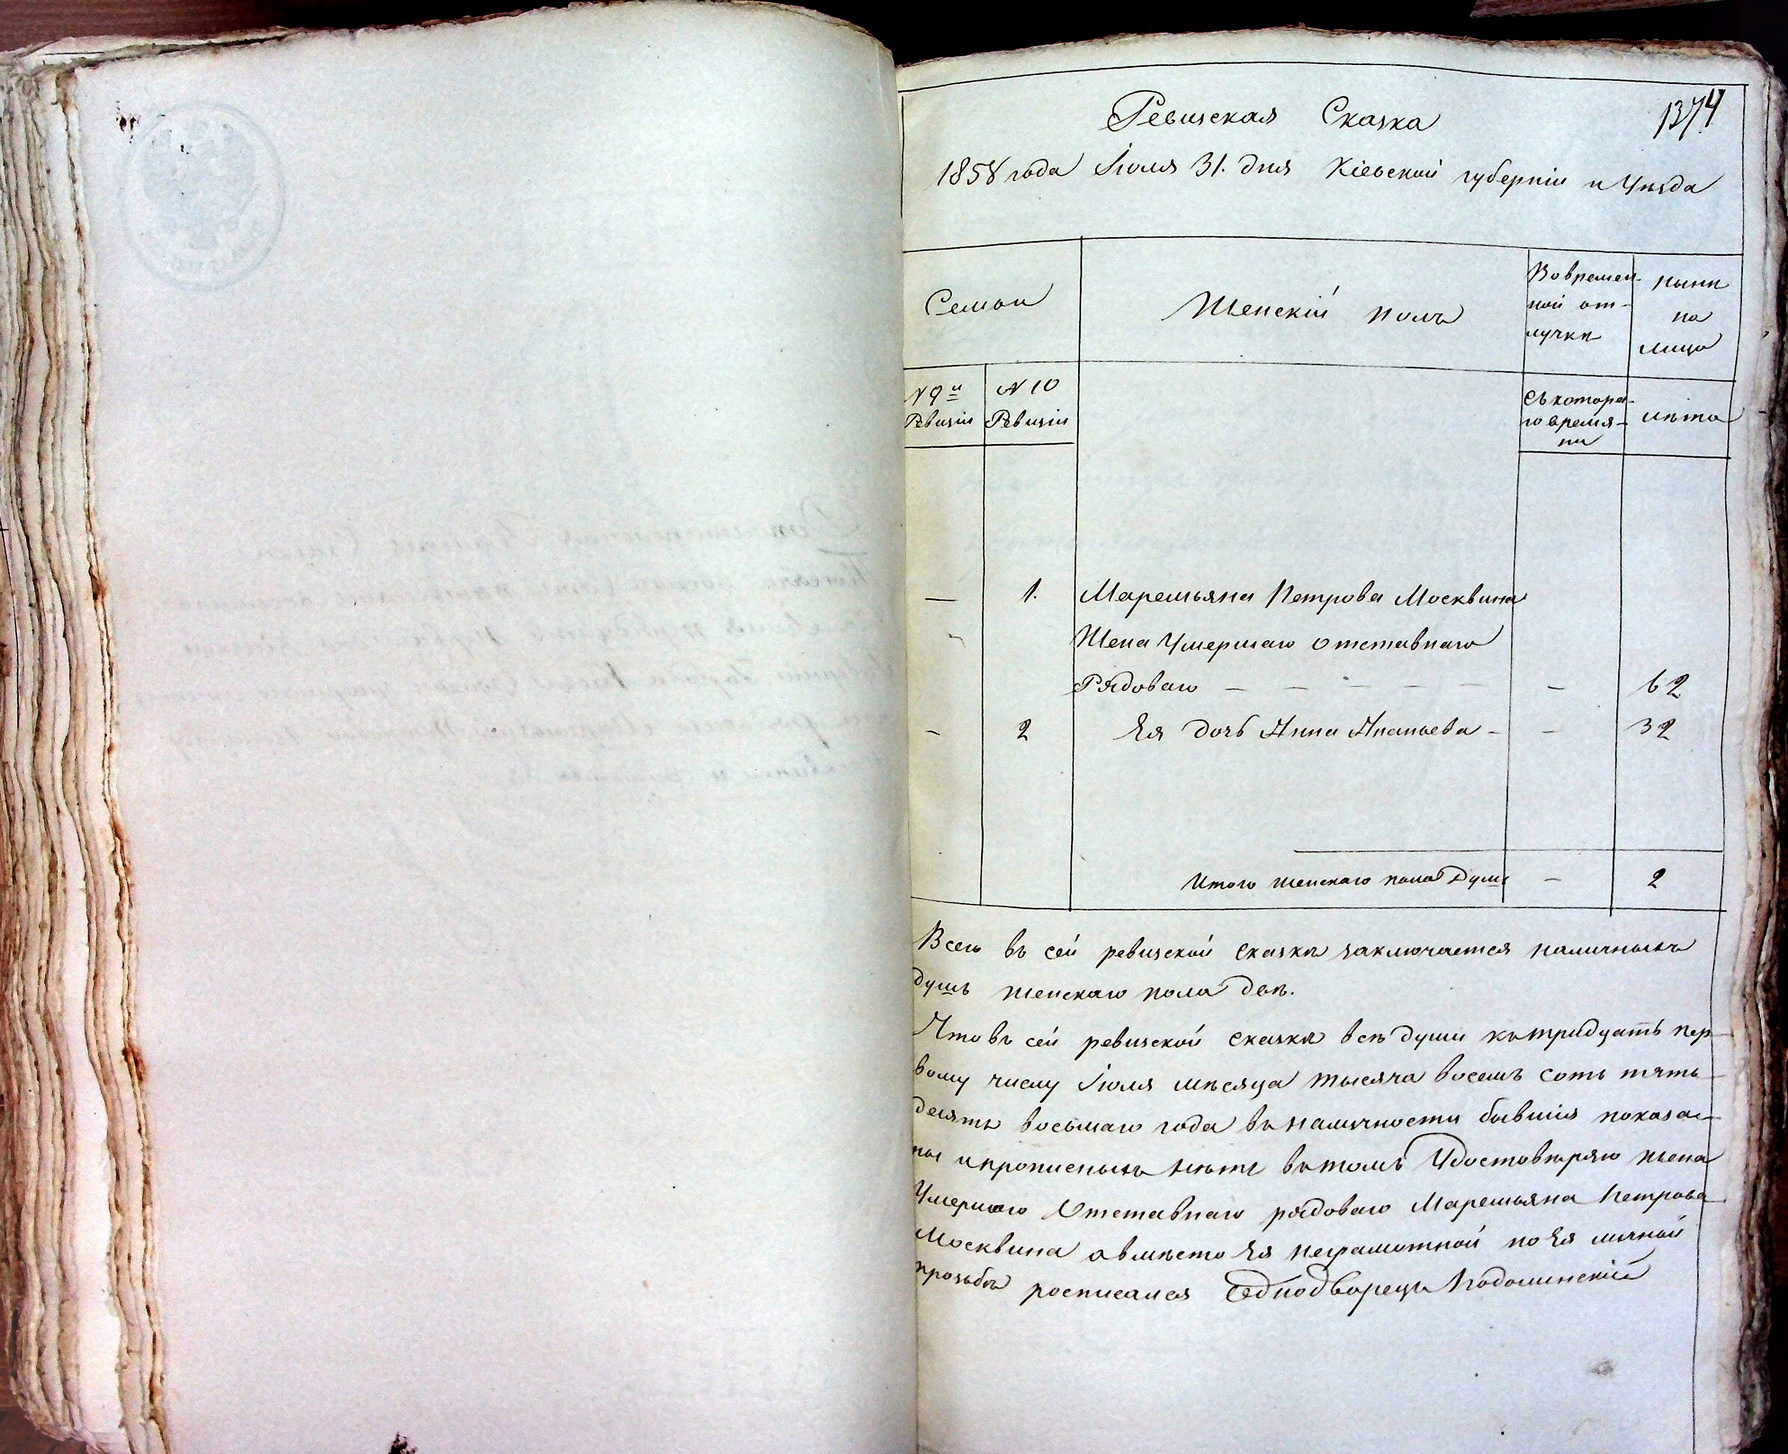 Ревизская Сказка
1374
1858 года Іюля 31. дня Кіевской губерніи и Уѣзда
Семьи
Женскій полъ
Вовремен-
ной от-
лучкѣ
нынѣ
на
лицо
N 9й
Ревизіи
N 10
Ревизіи
Съкотора-
го время-
ни
лѣта
— 1. Маремьяна Петрова Москвина
Жена Умершаго Отставнаго
Рядоваго — — — — — — 62
- 2 Ея дочь Анна Ананьева - - 32
Итого женскаго пола Душъ — 2
Всего въ сей ревизской сказкѣ заключается наличныхъ
душъ женскаго пола двѣ.
Что въ сей ревизской сказкѣ всѣ души къ тридцать пер-
вому числу Іюля мѣсяца тысяча восемь сотъ пять-
десятъ восьмаго года въ наличности бывшія показа-
ны ипрописныхъ нѣтъ вътомъ Удостовѣряю жена
Умершаго Отставнаго рядоваго Маремьяна Петрова
Москвина авмѣсто Ея неграмотной по Ея личной
прозьбѣ росписался Однодворецъ